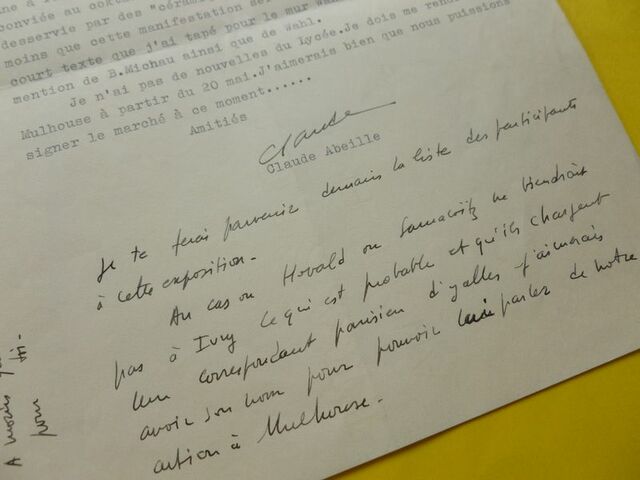 conviée au coktail
desservie par des "céram
moins que cette manifestation se
court texte que j'ai tapé pour le mur Wa
mention de B.Michau ainsi que de Wahl.
Je n'ai pas de nouvelles du Lycée.Je dois me rend
Mulhouse à partir du 20 mai.J'aimerais bien que nous puissions
signer le marché à ce moment......
Amitiés
Claude
Claude Abeille
Je te ferai parvenir demain la liste des participants
à cette exposition.
Au cas où Hovald ou ne viendrait
pas à Ivry ce qui est probable et qu'ils chargent
leur correspondant parisien d'y aller j'aimerais
avoir son nom pour pouvoir lui parler de notre
action à Mulhouse.
A moins
pour